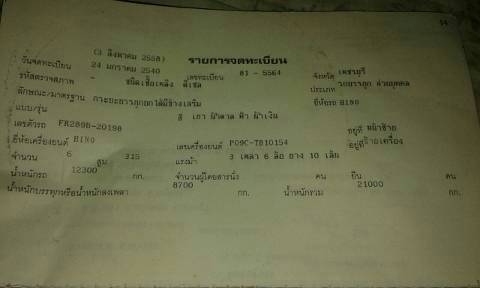 14
(3 สิงหาคม 2558) รายการจดทะเบียน
วันจดทะเบียน 24 มกราคม 2540 เลขทะเบียน 81 - 5564 จังหวัด เพชรบุรี
รหัสตรวจสภาพ - ชนิดเชื้อเพลิง ดีเซล ประเภท รถบรรทุก ส่วนบุคคล
ลักษณะ/มาตรฐาน กระบะบรรทุก ยี่ห้อรถ HINO
แบบ/รุ่น สี เทา ฟ้า น้ำเงิน
เลขตัวรถ FR289B-20198 อยู่ที่ หน้าซ้าย
ยี่ห้อเครื่องยนต์ HINO เลขเครื่องยนต์ P09C-TB10154 อยู่ที่ ซ้ายเครื่อง
จำนวน 6 สูบ 315 แรงม้า 3 เพลา 6 ล้อ ยาง 10 เส้น
น้ำหนักรถ 12300 กก. จำนวนผู้โดยสารนั่ง คน ยืน คน
น้ำหนักบรรทุกหรือน้ำหนักลงเพลา 8700 กก. น้ำหนักรวม 21000 กก.